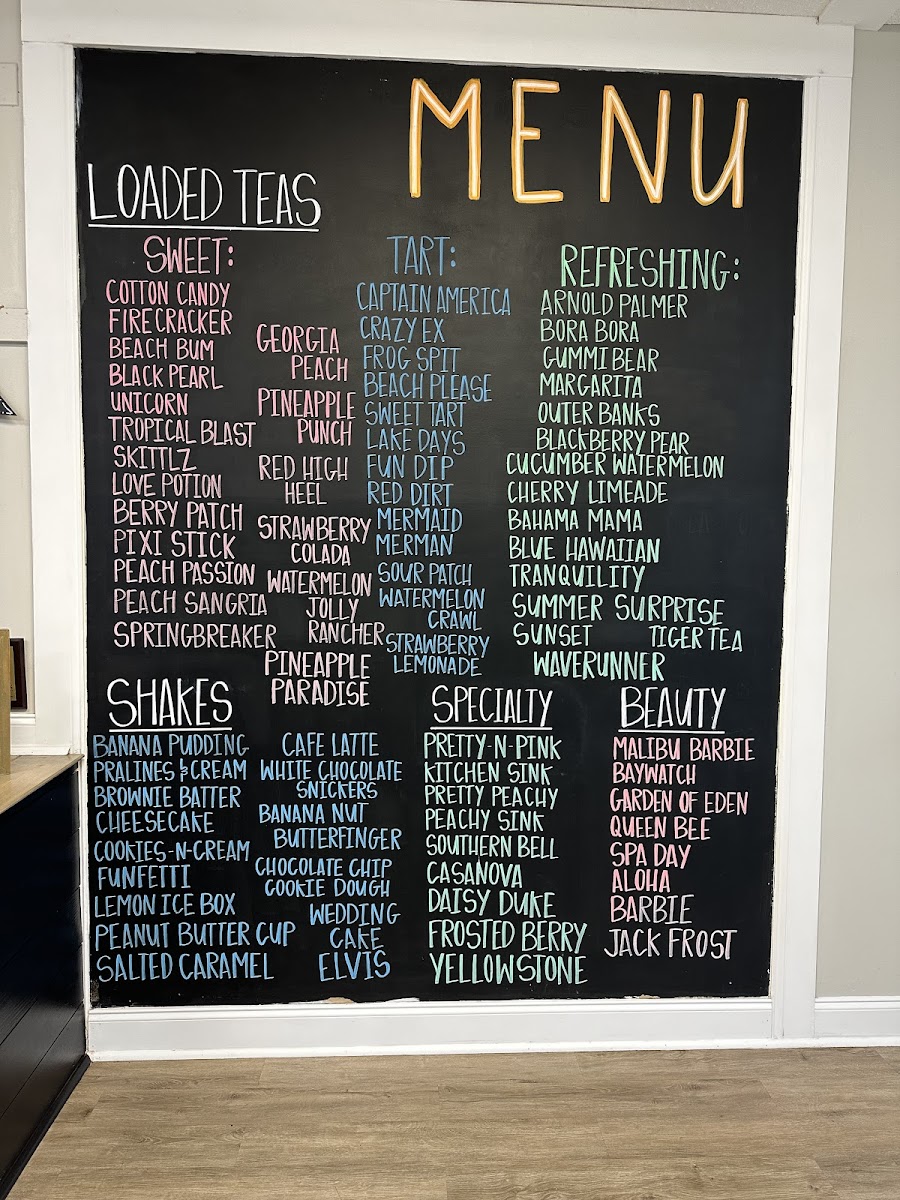 MENU
LOADED TEAS
SWEET:
COTTON CANDY
FIRECRACKER
BEACH BUM
BLACK PEARL
UNICORN
TROPICAL BLAST
SKITTLZ
LOVE POTION
BERRY PATCH
PIXI STICK
PEACH PASSION
PEACH SANGRIA
SPRINGBREAKER
GEORGIA
PEACH
PINEAPPLE
PUNCH
RED HIGH
HEEL
STRAWBERRY
COLADA
WATERMELON
JOLLY
RANCHER
PINEAPPLE
PARADISE
TART:
CAPTAIN AMERICA
CRAZY EX
FROG SPIT
BEACH PLEASE
SWEET TART
LAKE DAYS
FUN DIP
RED DIRT
MERMAID
MERMAN
SOUR PATCH
WATERMELON
CRAWL
STRAWBERRY
LEMONADE
REFRESHING:
ARNOLD PALMER
BORA BORA
GUMMI BEAR
MARGARITA
OUTER BANKS
BLACKBERRY PEAR
CUCUMBER WATERMELON
CHERRY LIMEADE
BAHAMA MAMA
BLUE HAWAIIAN
TRANQUILITY
SUMMER SURPRISE
SUNSET TIGER TEA
WAVERUNNER
SHAKES
BANANA PUDDING
PRALINES & CREAM
BROWNIE BATTER
CHEESECAKE
COOKIES-N-CREAM
FUNFETTI
LEMON ICE BOX
PEANUT BUTTER CUP
SALTED CARAMEL
CAFE LATTE
WHITE CHOCOLATE
SNICKERS
BANANA NUT
BUTTERFINGER
CHOCOLATE CHIP
COOKIE DOUGH
WEDDING
CAKE
ELVIS
SPECIALTY
PRETTY-N-PINK
KITCHEN SINK
PRETTY PEACHY
PEACHY SINK
SOUTHERN BELL
CASANOVA
DAISY DUKE
FROSTED BERRY
YELLOWSTONE
BEAUTY
MALIBU BARBIE
BAYWATCH
GARDEN OF EDEN
QUEEN BEE
SPA DAY
ALOHA
BARBIE
JACK FROST